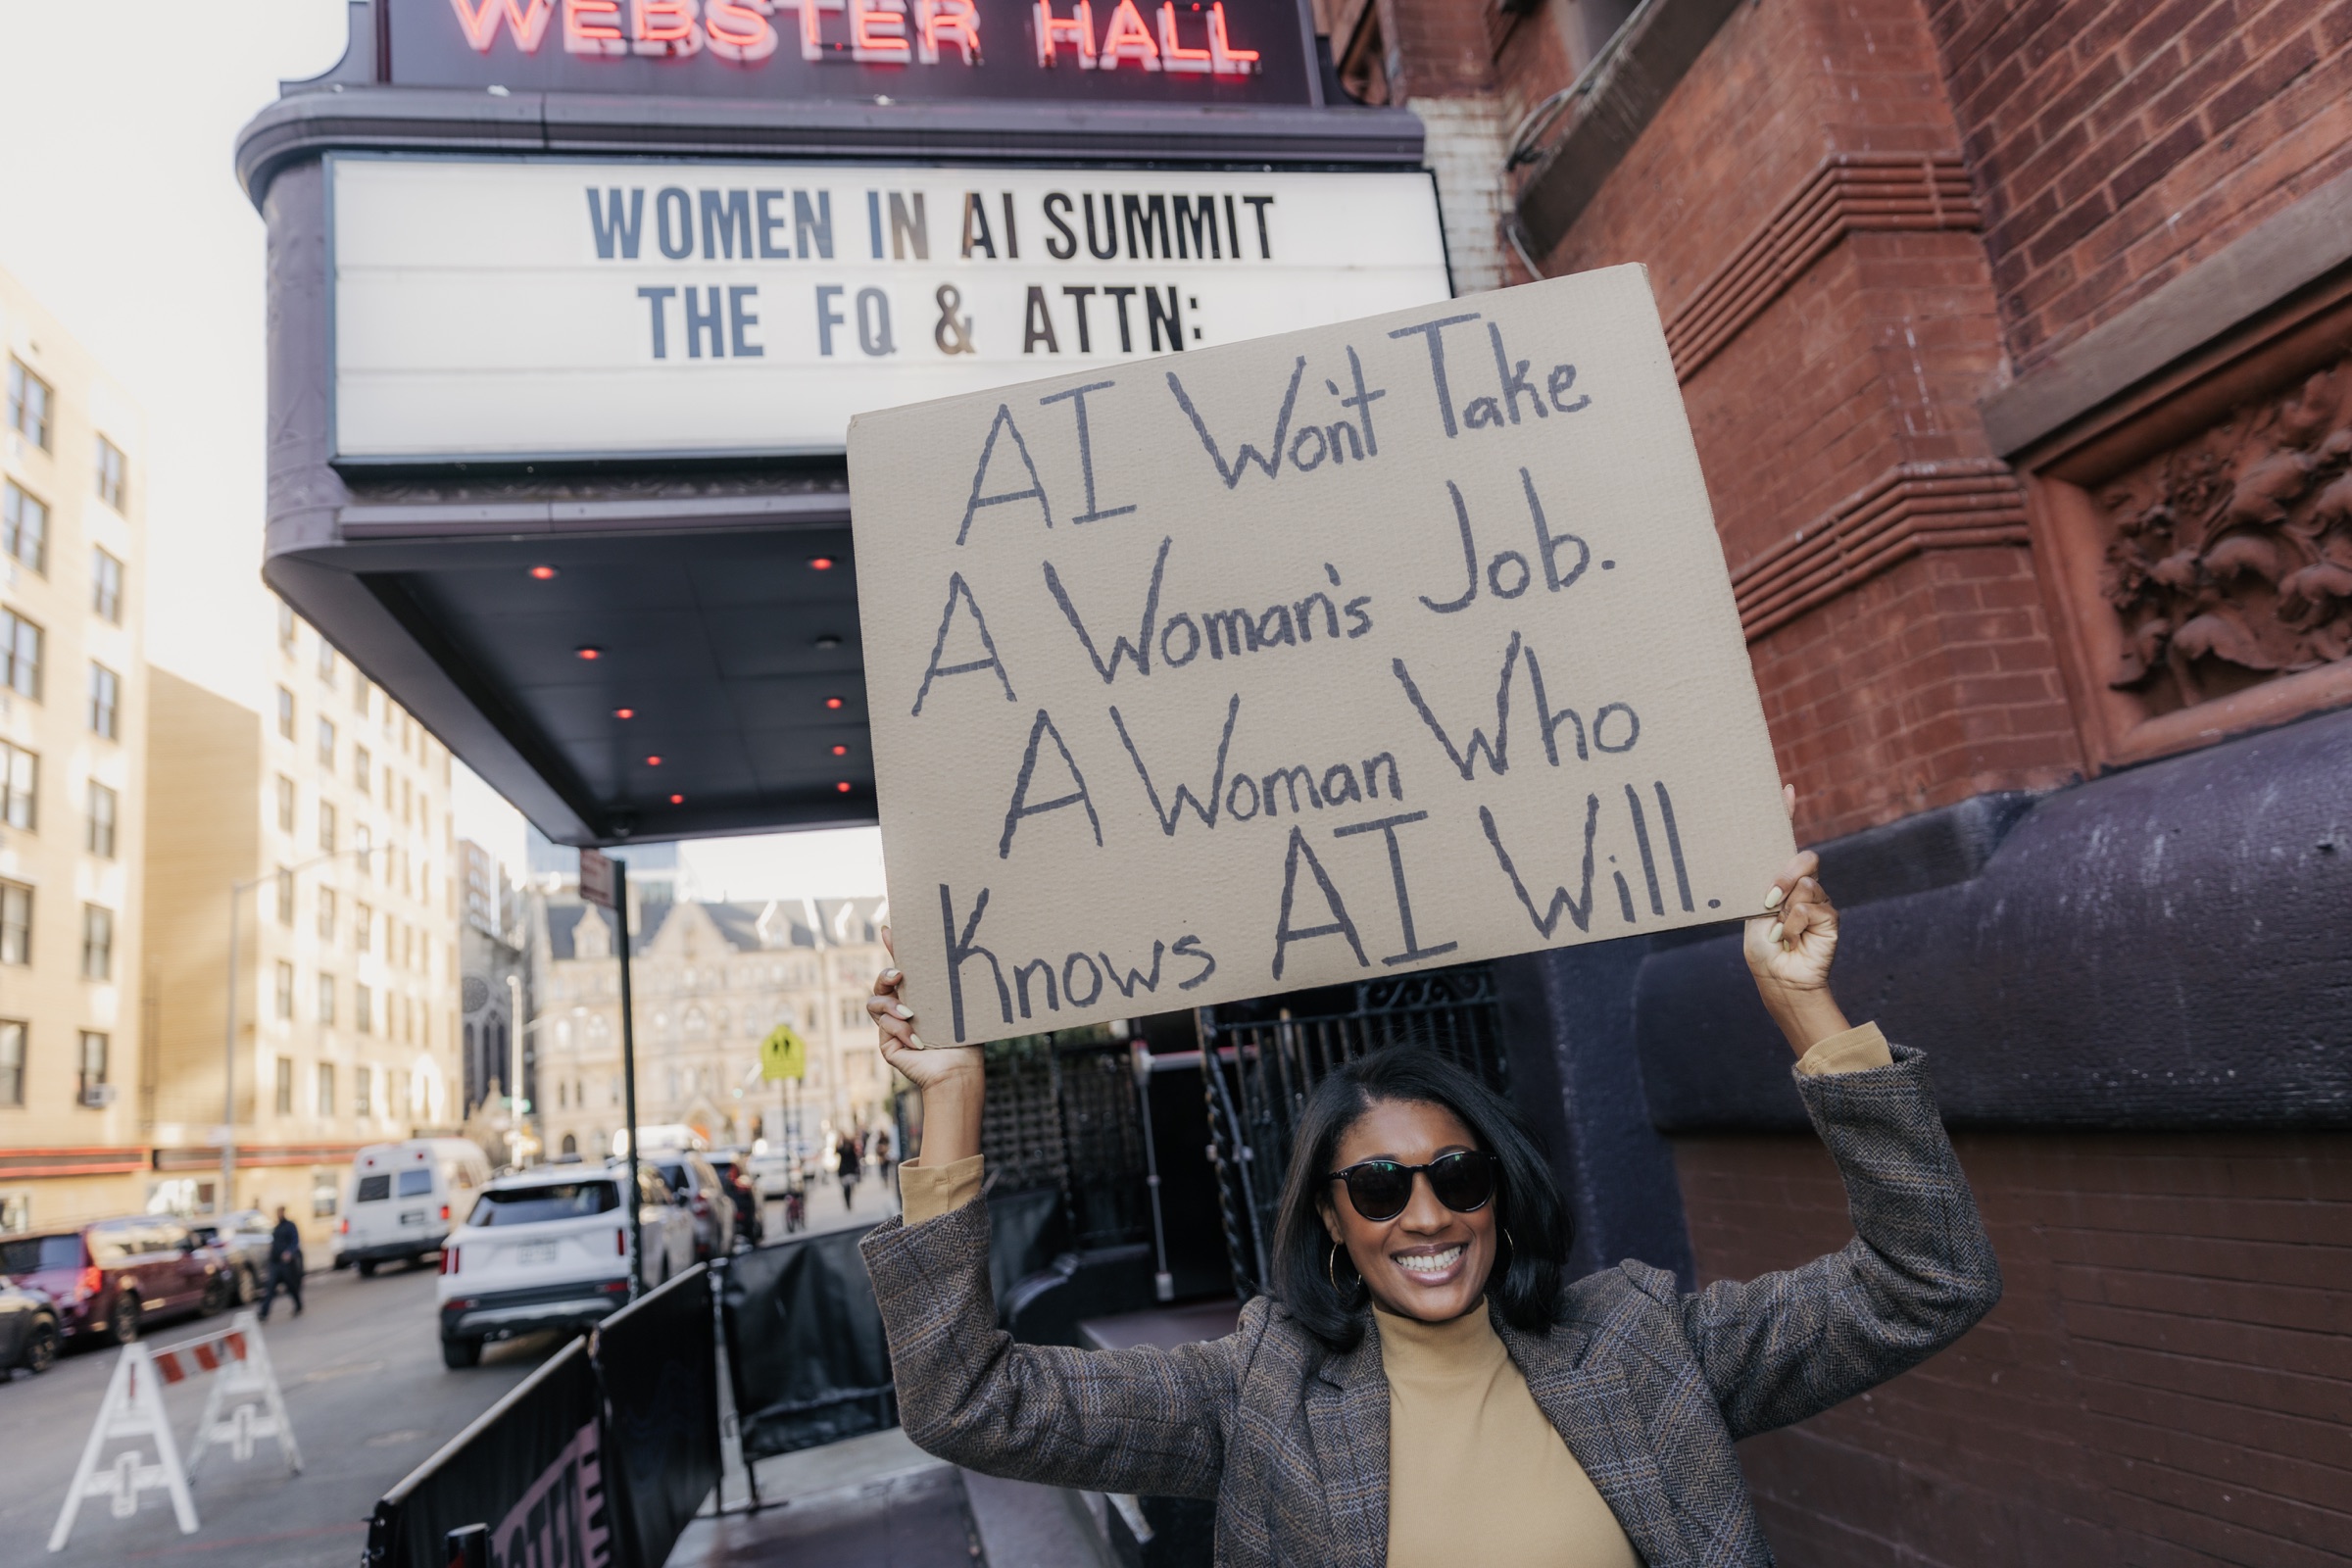 WEBSTER HALL
WOMEN IN AI SUMMIT
THE FQ & ATTN:
AI Won't Take
A Woman's Job.
A Woman Who
Knows AI Will.